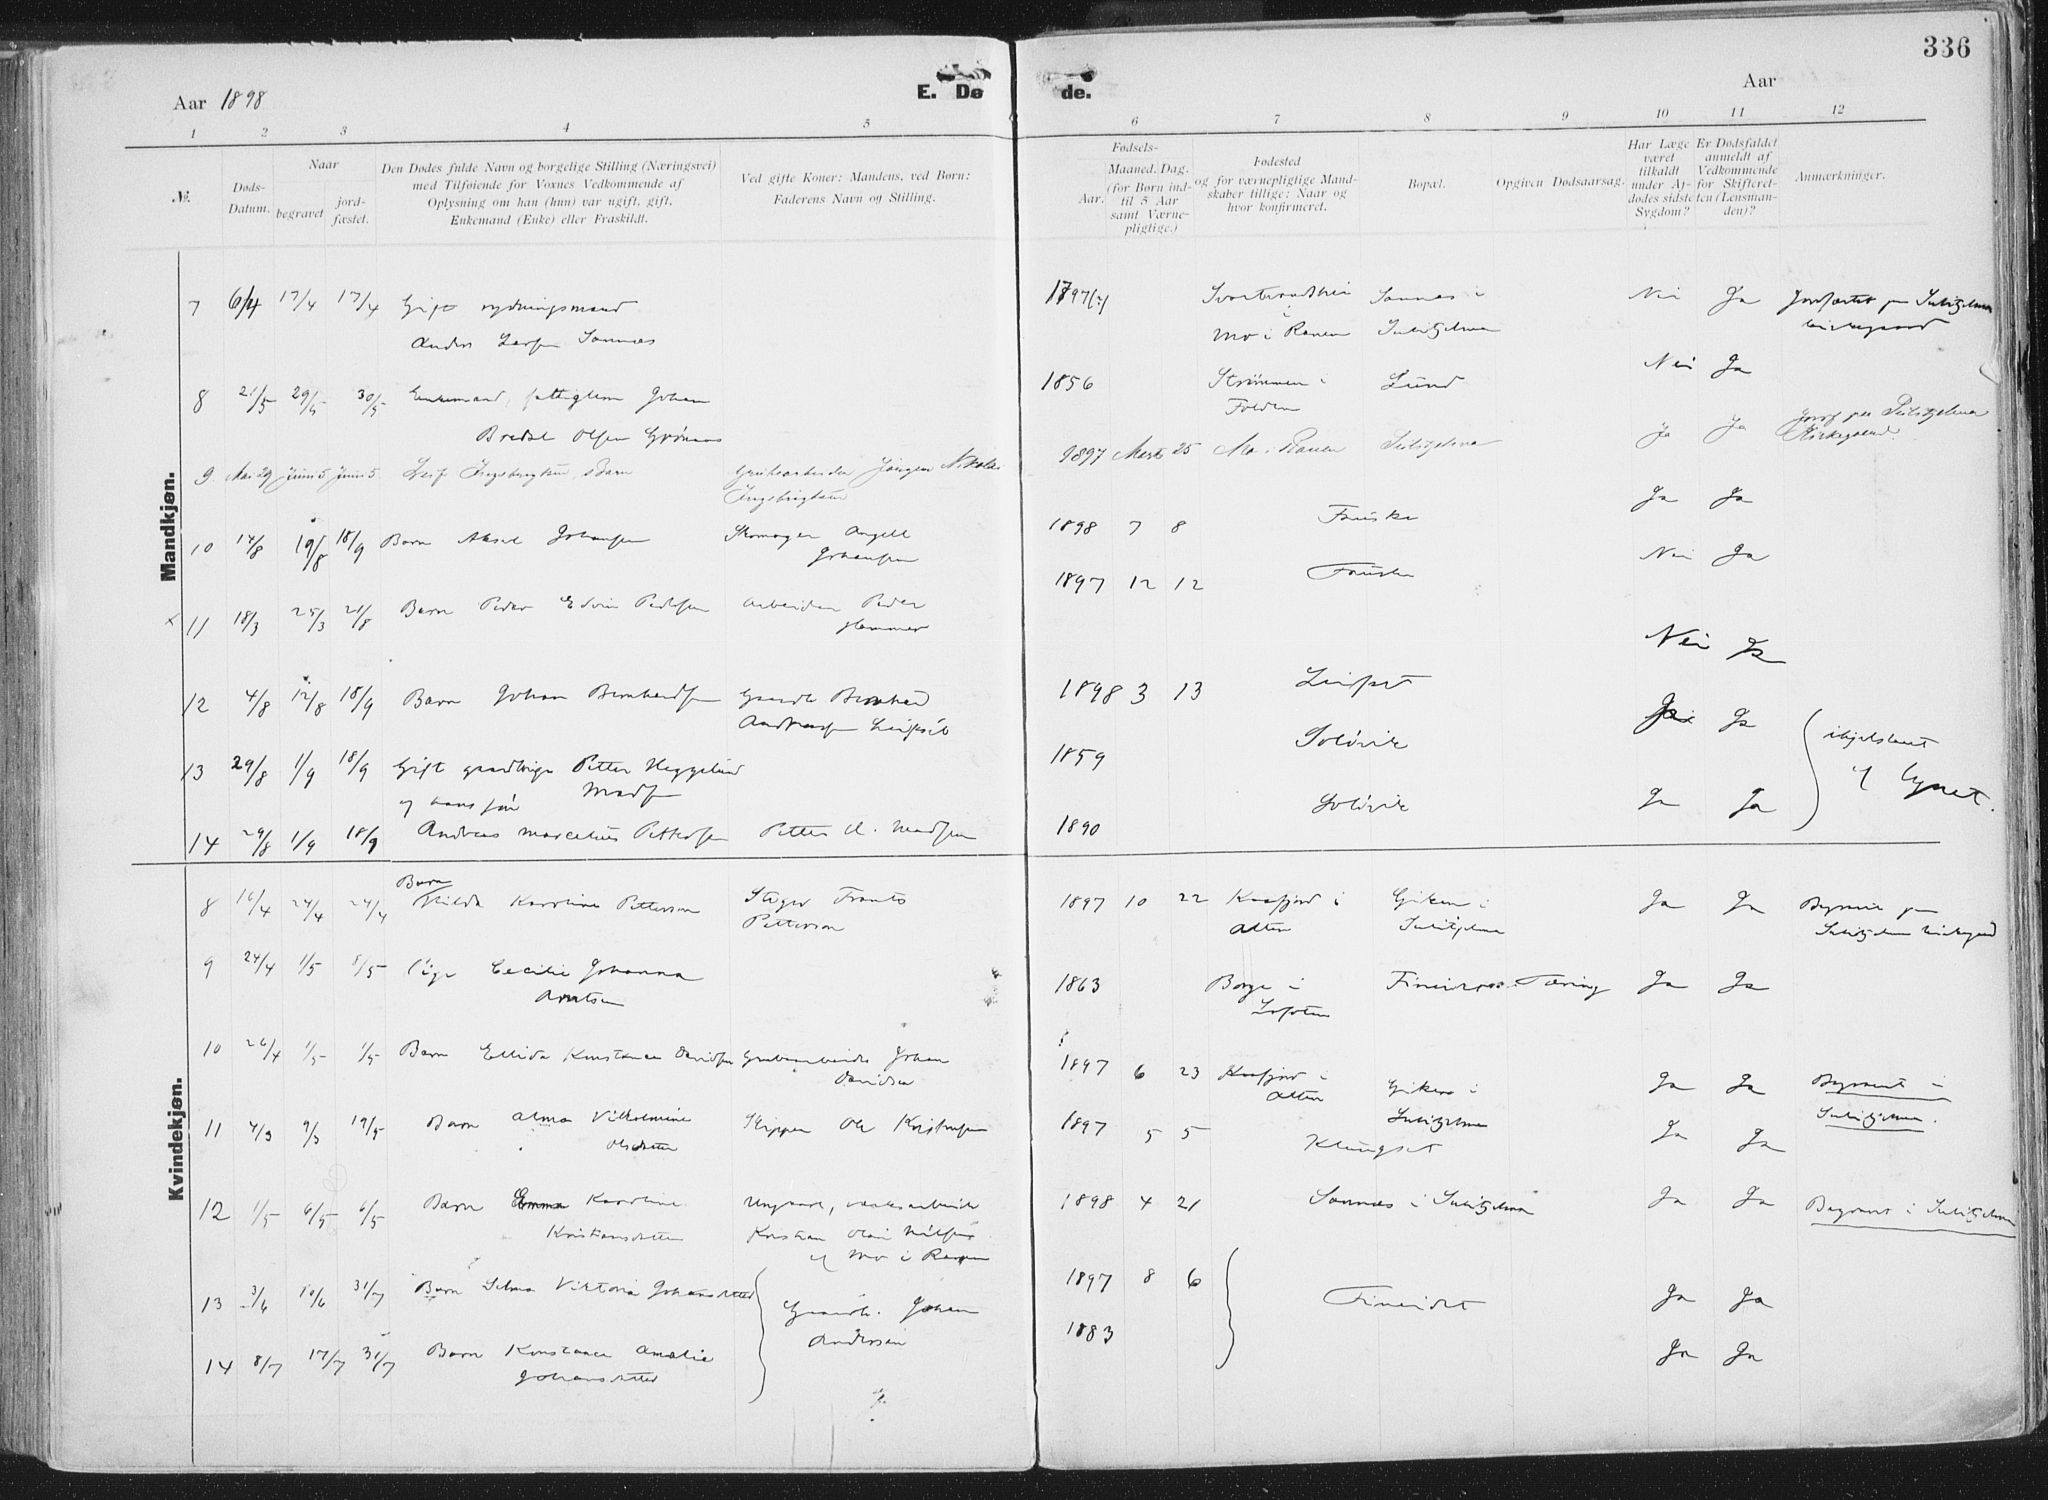 336
Aar 1898
E. Dø de.
Aar
1 2 3 4 5 6 7 8 9 10 11 12
№.
Døds-
Datum.
Naar
begravet
jord-
fæstet.
Den Dødes fulde Navn og borgelige Stilling (Næringsvei)
med Tilføiende for Voxnes Vedkommende af
Oplysning om han (hun) var ugift, gift,
Enkemand (Enke) eller Fraskildt.
Ved gifte Koner: Mandens, ved Børn:
Faderens Navn og Stilling.
Fødsels-
Aar.
Maaned. Dag.
(for Børn ind-
til 5 Aar
samt Værne-
pligtige.)
Fødested
og for værnepligtige Mand-
skaber tillige: Naar og
hvor konfirmeret.
Bopæl.
Opgiven Dødsaarsag.
Har Læge
været
tilkaldt
under Af-
dødes sidste
Sygdom?
Er Dødsfaldet
anmeldt af
Vedkommende
for Skifteret-
ten (Lensman-
den)?
Anmærkninger.
Mandkjøn.
7 6/4 17/4 17/4 Gift rydningsmand Nei Ja
Anders Larsen Sonnæs Mo i Ranen Sulitjelma
8 21/5 29/5 30/5 Enkemand, fattiglem Johan 1856 Strømmen i Lund Nei Ja
Bredal Olsen Folden
9 Mai 29 Juni 5 Juni 5 Leif Ingebrigtsen, Barn Grubearbeider Jørgen Nikolai 1897 Marts 25 Mo i Ranen Sulitjelma Ja Ja
Ingebrigtsen Kirkegaard.
10 14/8 19/8 18/9 Barn Aksel Johansen Skomager Angell 1898 7 8 Fauske Ja Ja
Johansen
x 11 18/3 25/3 21/8 Barn Peder Edvin Pedersen Arbeider Peder 1897 12 12 Fauske Nei Ja
Hammer
12 4/8 12/8 18/9 Barn Johan Bernhardsen Gaardb. Bernhard 1898 3 13 Leifset Nei Ja
Andreassen Leifset
13 29/8 1/9 18/9 Gift gaardbruger Petter Heggelund 1859 Solövik Ja ihjelslaaet
Madsen af Lynet.
og hans søn
14 29/8 1/9 18/9 Andreas Marcelius Pettersen Petter H. Madsen 1890 Solövik Ja Ja
Kvindekjøn.
Barn
8 16/4 24/4 24/4 Hilda Karoline Pettersen Stiger Frants 1897 10 22 Kaafjord i Giken i Ja Ja Begravet paa
Pettersen Alten Sulitjelma Sulitjelma kirkegaard
9 24/4 1/5 8/5 Pige Cecilie Johanna 1863 Borge i Fineidet Tæring Ja Ja
Arntsen Lofoten
10 26/4 1/5 1/5 Barn Ellida Konstance Davidsen Grubearbeider Johan 1897 6 23 Kaafjord i Giken i Ja Ja Begravet i
Davidsen Alten Sulitjelma Sulitjelma.
11 4/3 9/3 19/5 Barn Alma Vilhelmine Skipper Ole Kristensen 1897 5 5 Klungset Ja Ja
Olsdatter
12 1/5 6/5 6/5 Barn Emma Karoline Ungkarl, 1898 4 21 Sonnæs i Sulitjelma Ja Ja Begravet i Sulitjelma
Kristiansdatter Kristian Olai
af Mo i Ranen
13 3/6 10/6 31/7 Barn Selma Viktoria Johansdatter Gaardb. Johan 1897 8 6 Fineidet Ja Ja
Andersen
14 8/7 17/7 31/7 Barn Konstance Amalie 1883 Ja Ja
Johansdatter